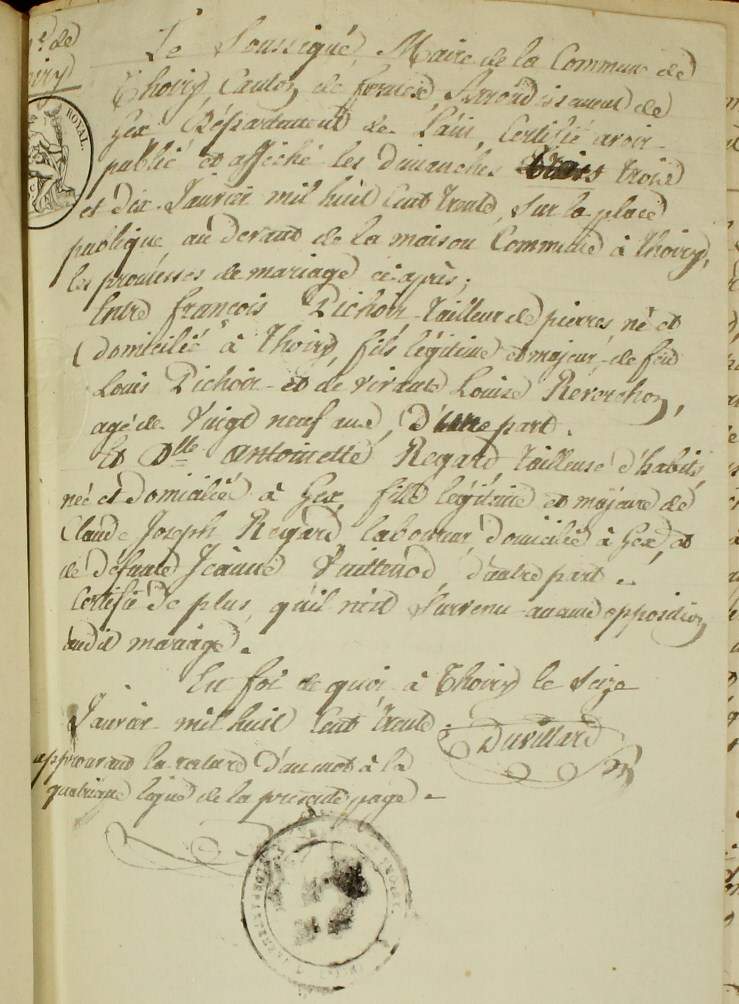 de
ROYAL.
Le Soussigné, Maire de la Commune de
Thoiry Canton de ferney, Arrondissement de
Gex Département de L'ain, Certifie avoir
publié et affiché les dimanches trois
et dix Janvier mil huit Cent trente, sur la place
publique au devant de la maison Commune à Thoiry,
les promesses de mariage ci-après;
Entre françois Pichoir tailleur de pierres né et
domicilié à Thoiry, fils légitime et majeur de feu
Louis Pichoir et de vivante Louise Revorchon,
agé de Vingt neuf ans, D'une part.
Et Dlle antoinette Regard tailleuse d'habits,
née et domiciliée à Gex, fille légitime et majeure de
Claude Joseph Regard laboureur, domicilié à Gex, et
de défunte Jeanne d'autre part.
Certifie De plus, qu'il n'est Survenu aucune opposition
audit mariage.
En foi de quoi à Thoiry le Seize
Janvier mil huit Cent trente.
Duvillard
approuvant la rature d'un mot à la
quatrième ligne de la présente page